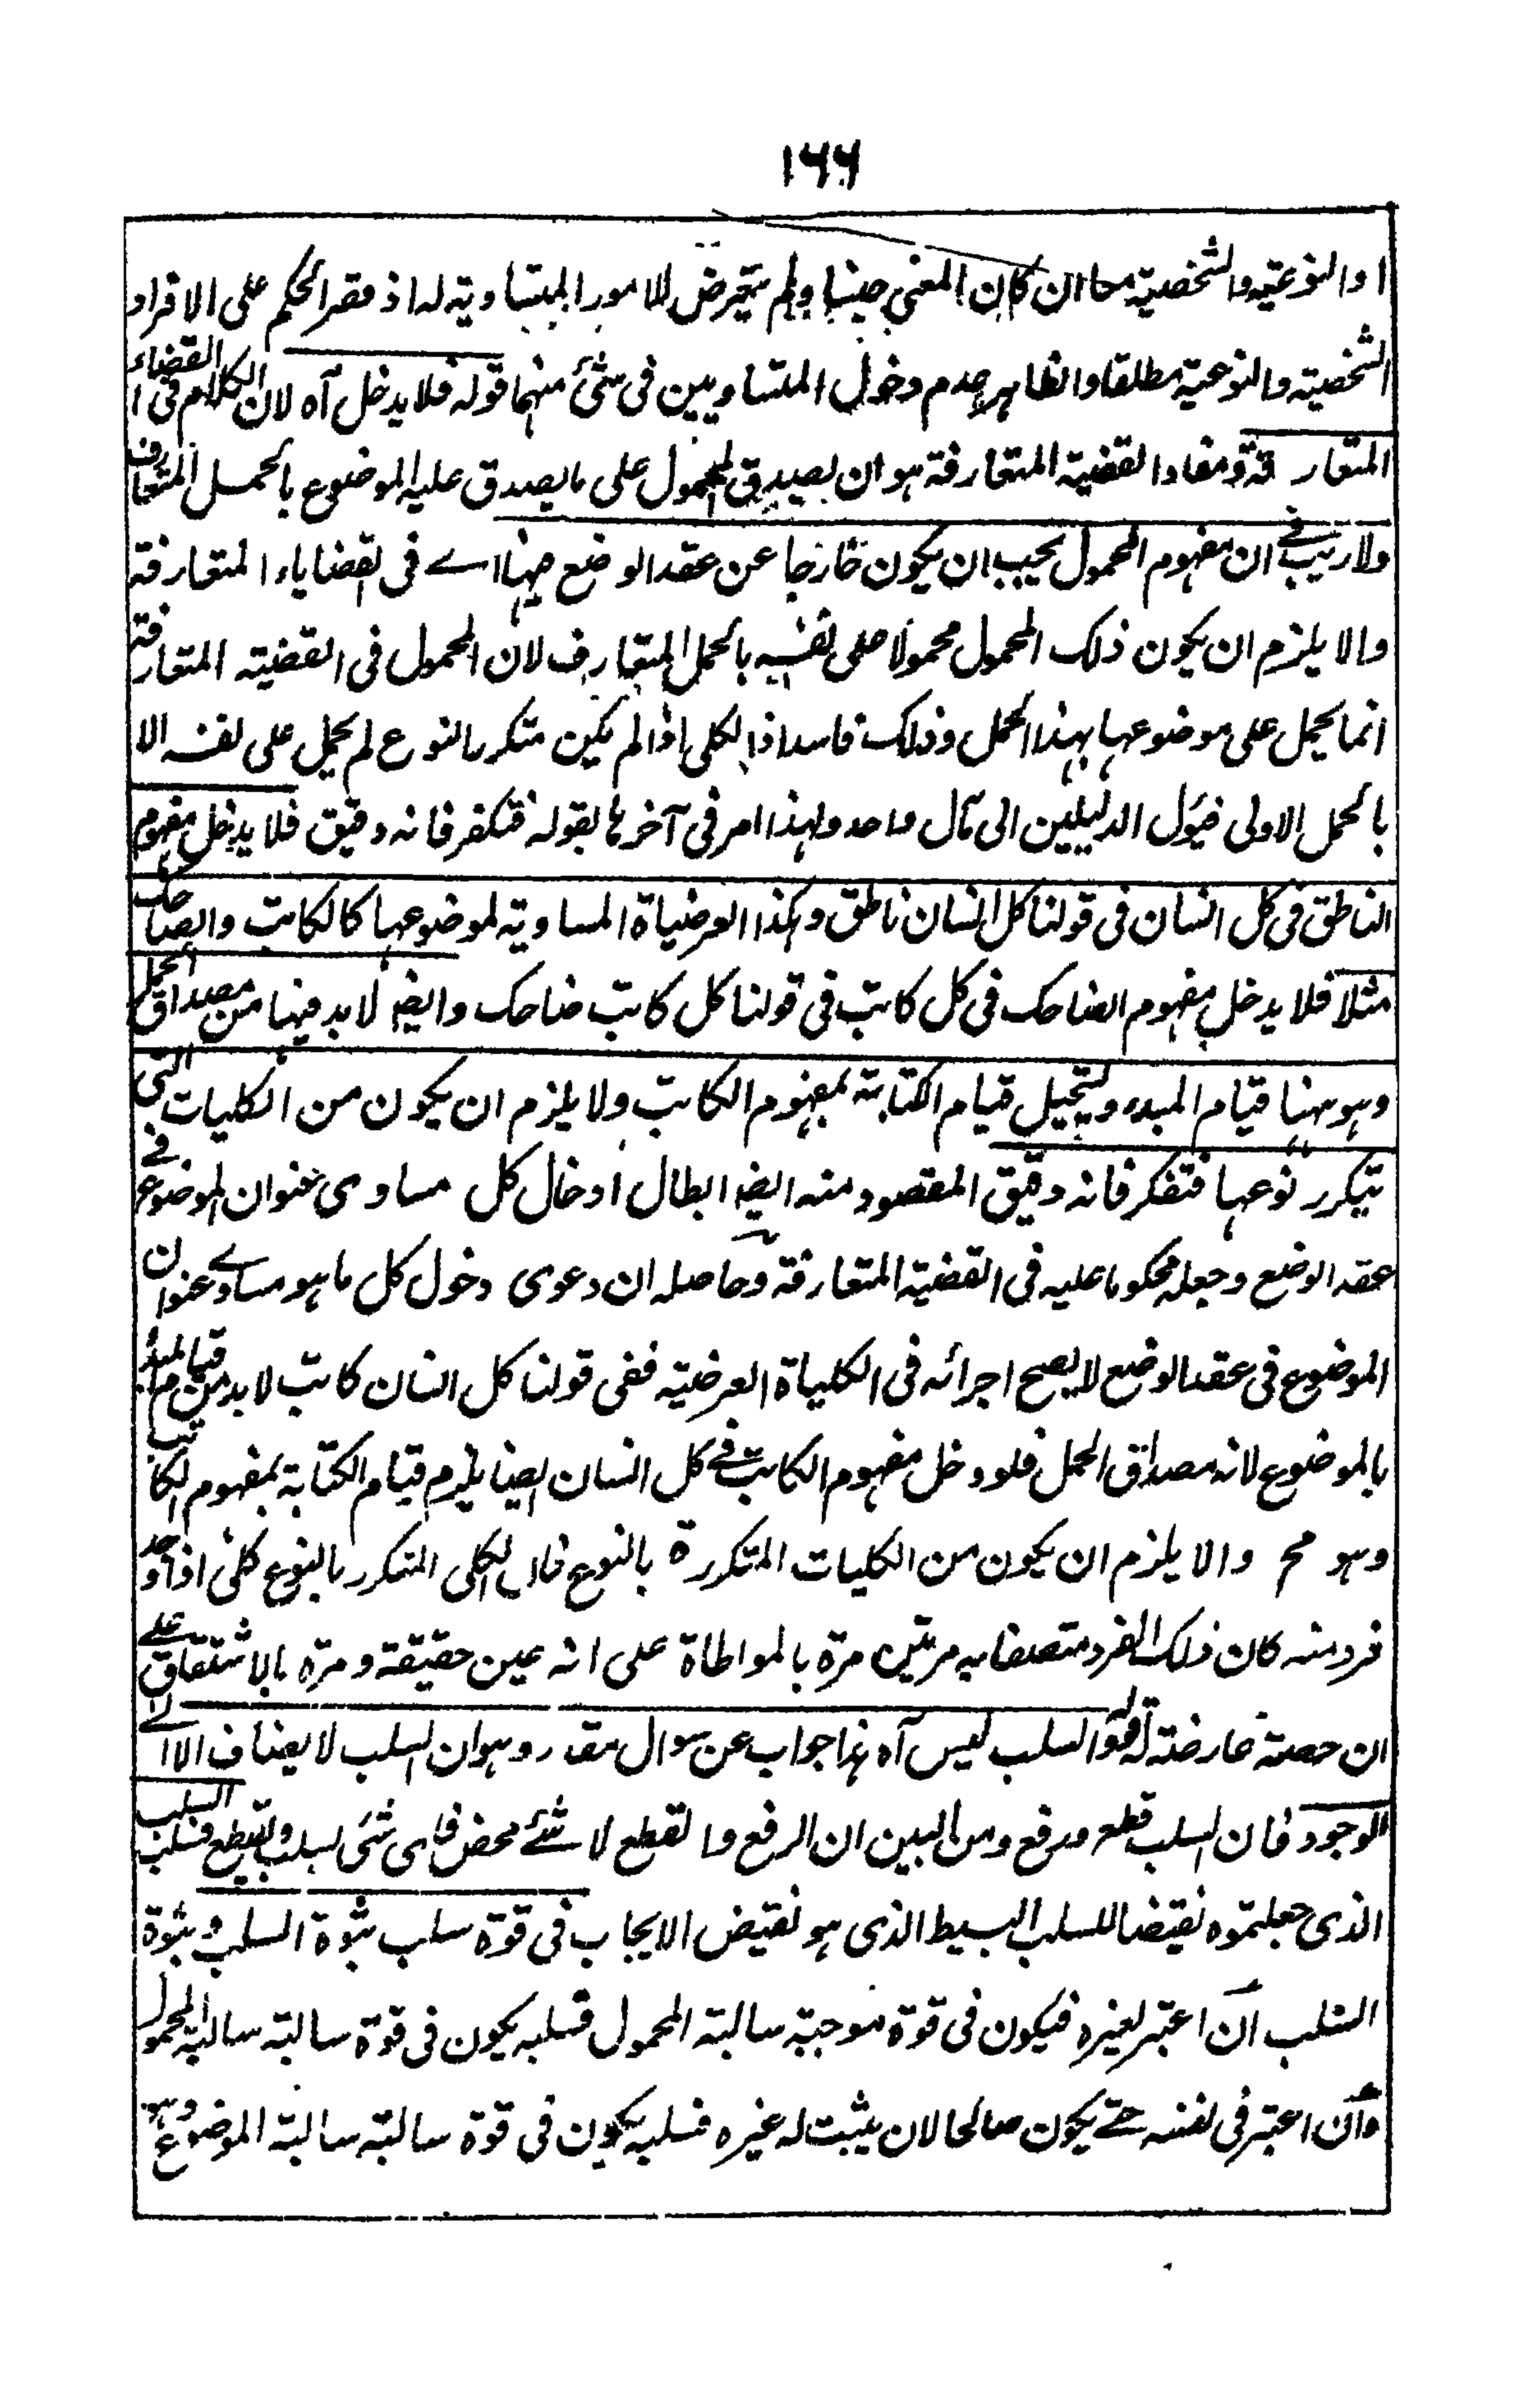 ١٦٦
او النوعية والشخصية معا ان كان المعنى جنسا ولم يتعرض للامور المتساوية له اذ قصر الحكم على الافراد
الشخصية والنوعية مطلقا والظاهر عدم دخول المتساويين فى شئ منهما قوله فلا يدخل آه لان الكلام فى القضاء
المتعارفة ومفاد القضية المتعارفة هو ان يصدق المحمول على ما يصدق عليه الموضوع بالحمل المتعارف
ولا ريب فے ان مفهوم المحمول يجب ان يكون خارجا عن عقد الوضع ههنا اے فى القضاياء المتعارفة
والا يلزم ان يكون ذلك المحمول محمولا على نفسه بالحمل المتعارف لان المحمول فى القضية المتعارفة
انما يحمل على موضوعها بهذا الحمل وذلك فاسد اذ الكلى اذا لم يكن متكرر النوع لم يحمل على نفسه الا
بالحمل الاولى فيؤل الدليلين الى مآل واحد ولهذا امر فى آخرها بقوله فتفكر فانه دقيق فلا يدخل مفهوم
الناطق فى كل انسان فى قولنا كل انسان ناطق وكذا العرضياة المساوية لموضوعها كالكاتب والضاحك
مثلا فلا يدخل مفهوم الضاحك فى كل كاتب فى قولنا كل كاتب ضاحك وايضا لا بد فيها من مصداق الحمل
وهو ههنا قيام المبدء ويستحيل قيام الكتابة بمفهوم الكاتب ولا يلزم ان يكون من الكليات التى
يتكرر نوعها فتفكر فانه دقيق المقصود منه ايضا ابطال ادخال كل مساوى عنوان الموضوع فے
عقد الوضع وجعله محكوما عليه فى القضية المتعارفة وحاصله ان دعوى دخول كل ما هو مساوے عنوان
الموضوع فى عقد الوضع لا يصح اجرائه فى الكلياة العرضية ففى قولنا كل انسان كاتب لا بد من قيام المبدأ
بالموضوع لانه مصداق الحمل فلو دخل مفهوم الكاتب فے كل انسان ايضا يلزم قيام الكتابة بمفهوم الكاتب
وهو مح والا يلزم ان يكون من الكليات المتكررة بالنوع فان الكلى المتكرر بالنوع كلى اذا وجد
فرد منه كان ذلك الفرد متصفا به مرتين مرة بالمواطاة على انه عين حقيقة ومرة بالاشتقاق علے
ان حصته عارضة له قوله السلب ليس آه هذا جواب عن سوال مقدر وهو ان السلب لا يضاف الا الے
الوجود فان السلب قطع ورفع ومن البين ان الرفع والقطع لا شئے محض فاى شئ يسلب ويقطع فسلب السلب
الذى جعلتموه نقيضا للسلب البسيط الذى هو نقيض الايجاب فى قوة سلب ثبوة السلب وثبوة
السلب ان اعتبر لغيره فيكون فى قوة موجبة سالبة المحمول فسلبه يكون فى قوة سالبة سالبة المحمول
وان اعتبر فى نفسه حتے يكون صالحا لان يثبت له غيره فسلبه يكون فى قوة سالبة سالبة الموضوع وهو